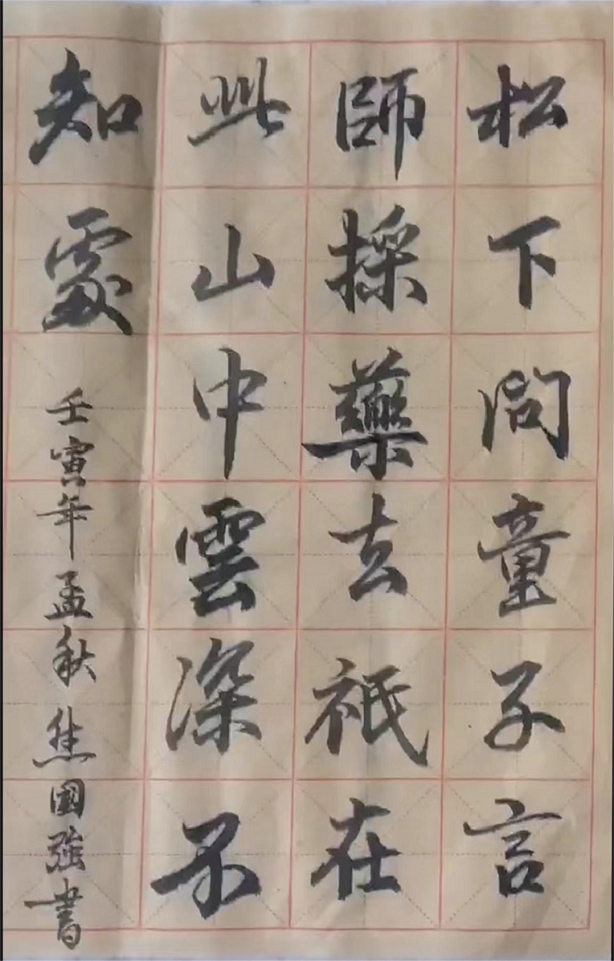 松下問童子言
師採藥去祇在
此山中雲深不
知處
壬寅年孟秋焦國強書